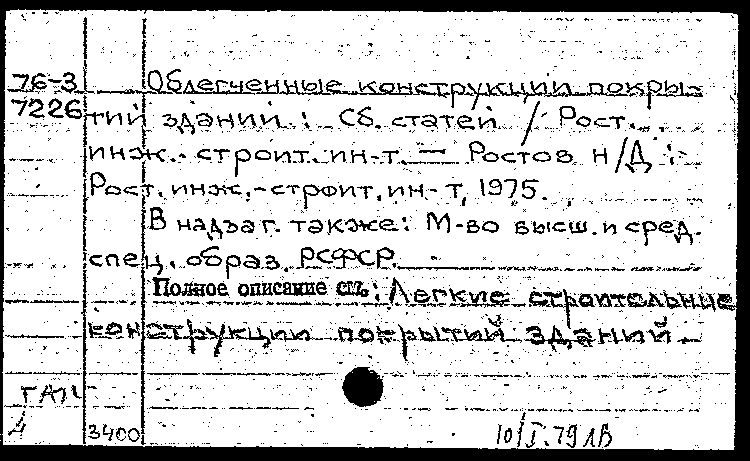 76-3 Облегченные конструкции покры-
7226 тий зданий: Сб. статей / Рост.
инж.-строит. ин-т. — Ростов н/Д:
Рост. инж.-строит. ин-т, 1975.
В надзаг. также: М-во высш. и сред.
спец. образ. РСФСР.
Полное описание см.: Легкие строительные
конструкции покрытий зданий.
4 3400 10/I.79 ЛВ